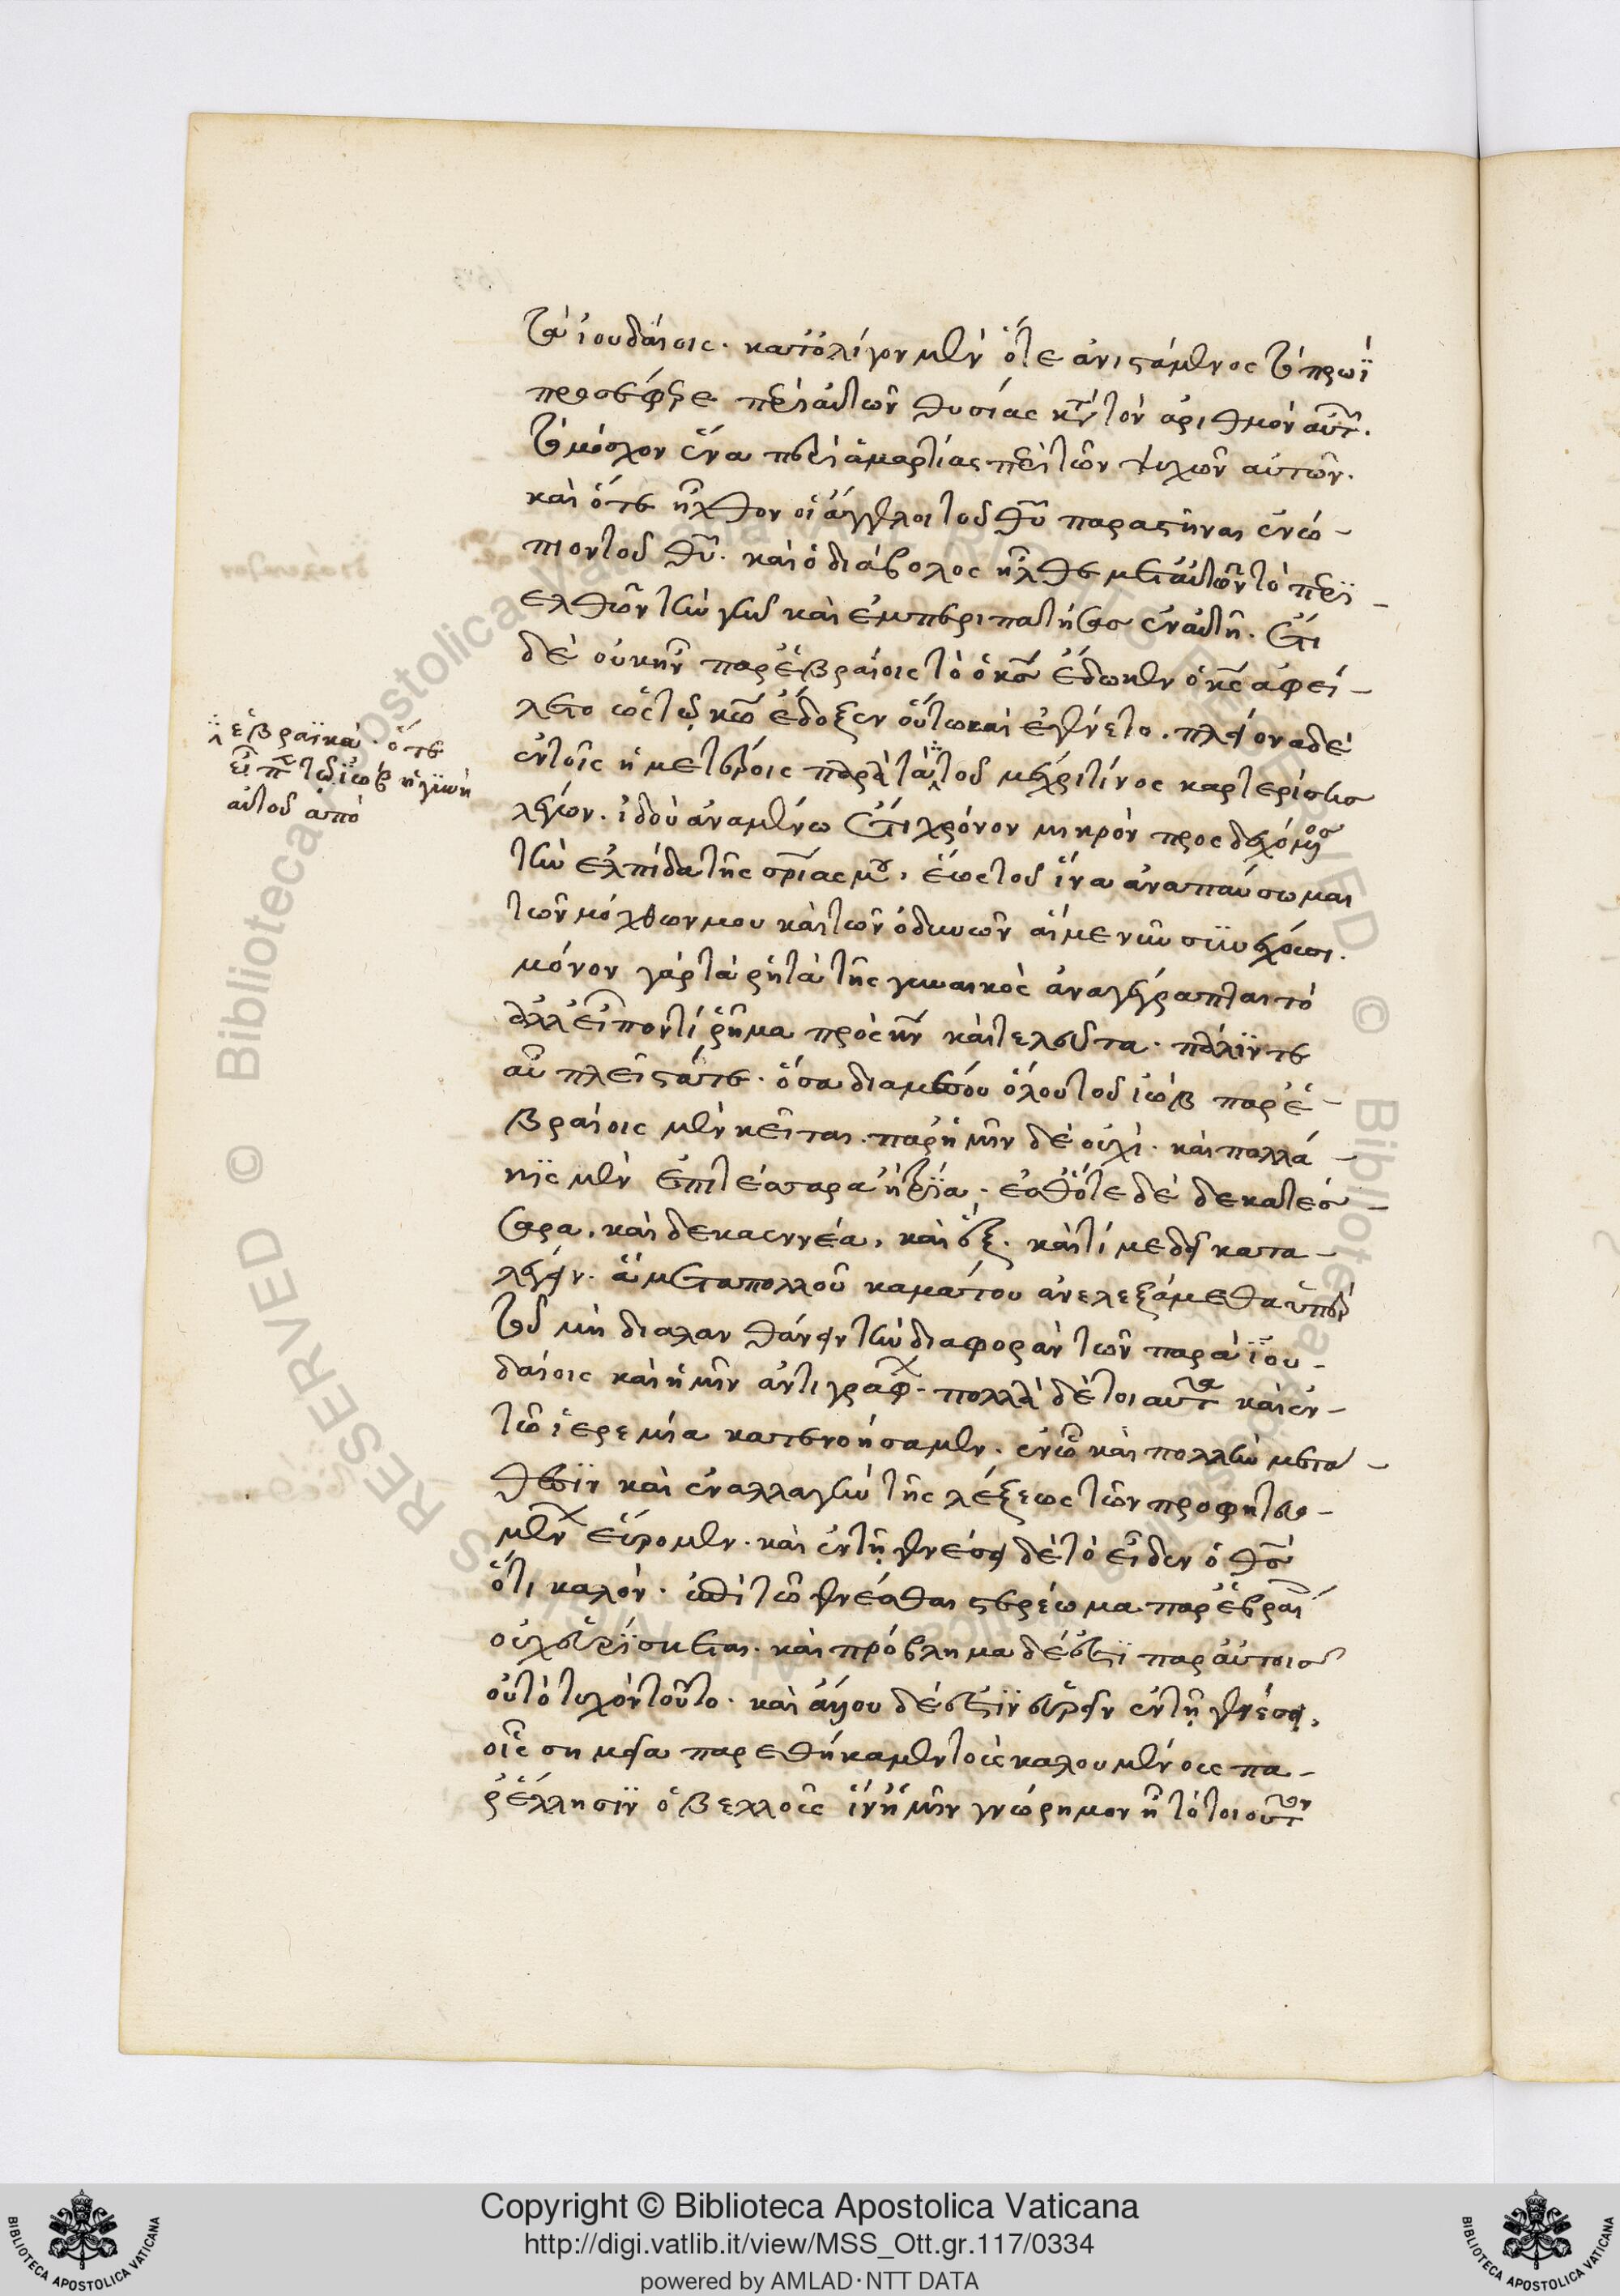 τὰ ἰουδαίοις. κατ' ὀλίγον μὲν ὅτε ἀνιστάμενος τὸ πρωῒ
προσέφερε περὶ αὐτῶν θυσίας κτ τὸν ἀριθμὸν αὐτ.
τὸ μόσχον ἕνα περὶ ἁμαρτίας περὶ τῶν ψυχῶν αὐτῶν.
καὶ ὅτε ἦλθον οἱ ἄγγελοι τοῦ θυ παραστῆναι ἐνώ-
πιον τοῦ θυ. καὶ ὁ διάβολος ἦλθε μετ' αὐτῶν τὸ περϊ-
ελθὼν τὴν γῆν καὶ ἐμπεριπατήσας ἐν αὐτῆ. ἔτι
δὲ οὐκ ἦν παρ' ἑβραίοις τὸ ὁ κς ἔδωκεν ὁ κς ἀφεί-
λετο ὡς τῷ κω ἔδοξεν οὕτω καὶ ἐγένετο. πλείονα δὲ
ἐν τοῖς ἡμετέροις παρὰ τὰ τοῦ μέχρι τίνος καρτερίσεις
λέγων. ἰδοὺ ἀναμένω ἔτι χρόνον μικρὸν προσδεχόμενος
τὴν ἐλπίδα τῆς σρίας μου, ἕως τοῦ ἵνα ἀναπαύσωμαι
τῶν μόχθων μου καὶ τῶν ὀδυνῶν αἵ με νῦν συνέχουσι.
μόνον γὰρ τὰ ῥητὰ τῆς γυναικὸς ἀναγέγραπται τὸ
ἀλλ' εἶπον τί ῥῆμα πρὸς κν καὶ τελεύτα. πάλϊν τε
αὖ πλεῖστά τε. ὅσα διαμέσου ὅλου τοῦ ἰὼβ παρ' ἑ-
βραίοις μὲν κεῖται. παρ' ἡμῖν δὲ οὐχὶ. καὶ πολλά-
κϊς μὲν ἔπη τέσσαρα ἢ τρία. ἐσθ' ὅτε δὲ δεκατέσ-
σαρα, καὶ δεκαεννέα, καὶ ἓξ. καὶ τί με δεῖ κατα-
λέγειν. ἃ μετὰ πολλοῦ καμάτου ἀνελεξάμεθα ὑπὲρ
τοῦ μὴ διαλανθάνειν τὴν διαφορὰν τῶν παρὰ ϊου-
δαίοις καὶ ἡμῖν ἀντιγράφ. πολλὰ δὲ τοιαῦτα καὶ ἐν
τῶ ἱερεμία κατενοήσαμεν. ἐν ὧ καὶ πολλὴν μετά-
θεσϊν καὶ ἐναλλαγὴν τῆς λέξεως τῶν προφητευο-
μένων εὕρομεν. καὶ ἐν τῇ γενέσει δὲ τὸ εἶδεν ὁ θς
ὅτι καλὸν. ἐπὶ τῶ γενέσθαι στερέωμα παρ' ἑβραί
οὐχ εὑρϊσκεται. καὶ πρόβλημα δέ ἐστϊ παρ' αὐτοῖς
οὐ τὸ τυχὸν τοῦτο. καὶ ἄλλου δέ ἐστϊν εὑρεῖν ἐν τῇ γενέσει,
οἷς σημεῖα παρεθήκαμεν τοὺς καλουμένους πα-
ρ' ἕλλησϊν ὀβελλοὺς ἵν' ἡμῖν γνώρημον ᾖ τὸ τοιοῦτον
ἑβραϊκὰ. ὅτε
εἶπε τῷ ϊὼβ ἡ γυνὴ
αὐτοῦ ἀπὸ
Copyright © Biblioteca Apostolica Vaticana
http://digi.vatlib.it/view/MSS_Ott.gr.117/0334
powered by AMLAD·NTT DATA
BIBLIOTECA APOSTOLICA VATICANA
BIBLIOTECA APOSTOLICA VATICANA